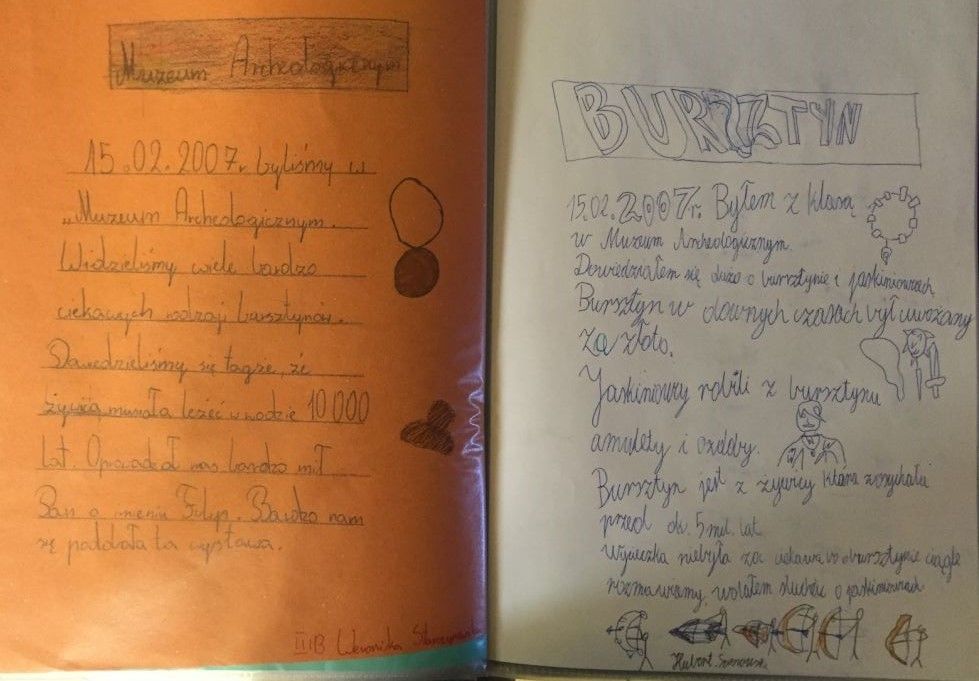 Muzeum Archeologicznym
15.02.2007r. byliśmy w
„Muzeum Archeologicznym.
Widzieliśmy wiele bardzo
ciekawych rodzaji bursztynów.
Dowiedzieliśmy się tagże, że
żywica musiała leżeć w wodzie 10 000
lat. Oprowadzał nas bardzo mił
Pan o imieniu Filip. Bardzo nam
się podobała ta wystawa.
III B Weronika
BURSZTYN
15.02.2007r. Byłem z klasą
w Muzeum Archeologicznym.
Dowiedziałem się dużo o bursztynie i jaskiniowcach
Bursztyn w dawnych czasach był uważany
za złoto.
Jaskiniowcy robili z bursztynu
amulety i ozdoby.
Bursztyn jest z żywicy która zasychała
przed ok. 5 mil. lat
Wycieczka niebyła ciekawa bo o bursztynie ciągle
rozmawiamy, wolałem słuchać o jaskiniowcach
Hubert